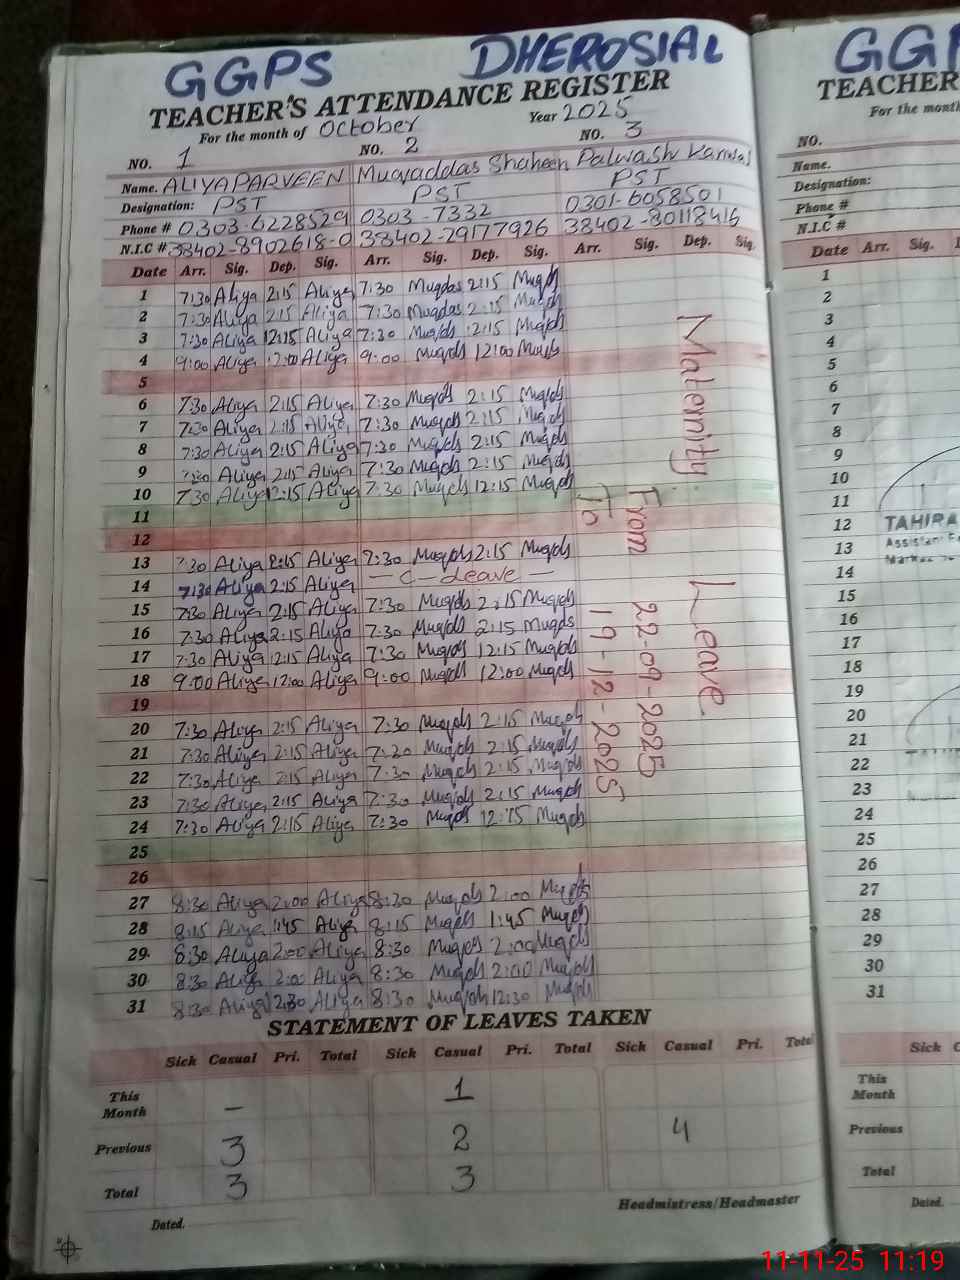 GGPS DHEROSIAL
TEACHER'S ATTENDANCE REGISTER
For the month of October Year 2025
NO. 1 NO. 2 NO. 3
Name. ALIYA PARVEEN Muqaddas Shaheen Palwash
Designation: PST PST PST
Phone # 0303-6228529 0303-7332 0301-6058501
N.I.C # 38402-8902618-0 38402-29177926 38402-80118416
Date Arr. Sig. Dep. Sig. Arr. Sig. Dep. Sig. Arr. Sig. Dep. Sig.
1 7:30 Aliya 2:15 Aliya 7:30 Muqdas 2:15 Muqds
2 7:30 Aliya 2:15 Aliya 7:30 Muqdas 2:15 Muqds
3 7:30 Aliya 12:15 Aliya 7:30 Muqds 12:15 Muqds
4 9:00 Aliya 12:00 Aliya 9:00 Muqds 12:00 Muqds
5
6 7:30 Aliya 2:15 Aliya 7:30 Muqds 2:15 Muqds
7 7:30 Aliya 2:15 Aliya 7:30 Muqds 2:15 Muqds
8 7:30 Aliya 2:15 Aliya 7:30 Muqds 2:15 Muqds
9 7:30 Aliya 2:15 Aliya 7:30 Muqds 2:15 Muqds
10 7:30 Aliya 12:15 Aliya 7:30 Muqds 12:15 Muqds
11
12
13 7:30 Aliya 2:15 Aliya 7:30 Muqds 2:15 Muqds
14 7:30 Aliya 2:15 Aliya — C — Leave —
15 7:30 Aliya 2:15 Aliya 7:30 Muqds 2:15 Muqds
16 7:30 Aliya 2:15 Aliya 7:30 Muqds 2:15 Muqds
17 7:30 Aliya 12:15 Aliya 7:30 Muqds 12:15 Muqds
18 9:00 Aliya 12:00 Aliya 9:00 Muqds 12:00 Muqds
19
20 7:30 Aliya 2:15 Aliya 7:30 Muqds 2:15 Muqds
21 7:30 Aliya 2:15 Aliya 7:20 Muqds 2:15 Muqds
22 7:30 Aliya 2:15 Aliya 7:30 Muqds 2:15 Muqds
23 7:30 Aliya 2:15 Aliya 7:30 Muqds 2:15 Muqds
24 7:30 Aliya 2:15 Aliya 7:30 Muqds 12:15 Muqds
25
26
27 8:30 Aliya 2:00 Aliya 8:30 Muqds 2:00 Muqds
28 8:15 Aliya 1:45 Aliya 8:15 Muqds 1:45 Muqds
29 8:30 Aliya 2:00 Aliya 8:30 Muqds 2:00 Muqds
30 8:30 Aliya 2:00 Aliya 8:30 Muqds 2:00 Muqds
31 8:30 Aliya 12:30 Aliya 8:30 Muqds 12:30 Muqds
Maternity Leave.
From 22-09-2025
To 19-12-2025
STATEMENT OF LEAVES TAKEN
Sick Casual Pri. Total Sick Casual Pri. Total Sick Casual Pri. Total
This Month — 1
Previous 3 2 4
Total 3 3
Headmistress/Headmaster
Dated.
GGP
TEACHER
For the month
NO.
Name.
Designation:
Phone #
N.I.C #
Date Arr. Sig.
1
2
3
4
5
6
7
8
9
10
11
12
13
14
15
16
17
18
19
20
21
22
23
24
25
26
27
28
29
30
31
TAHIRA
Sick
This Month
Previous
Total
Dated.
11-11-25 11:19